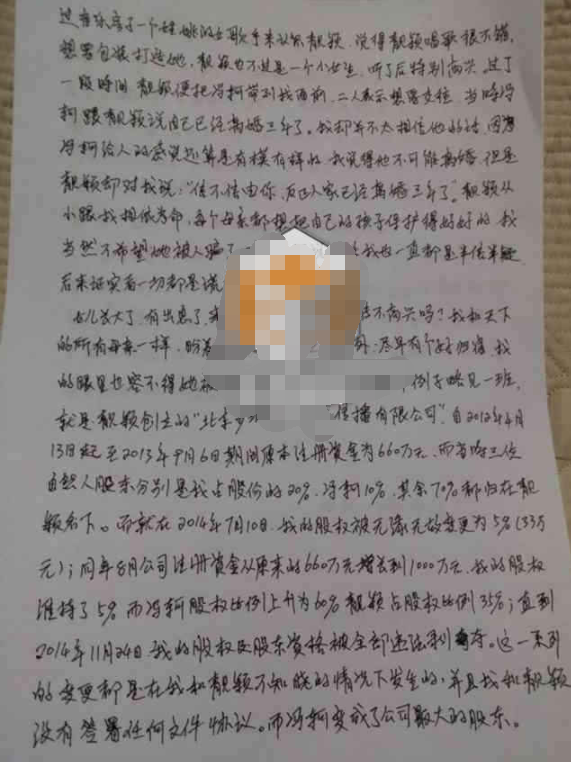 过音乐房了一个姓姚的女歌手来认靓颖，说得靓颖唱歌很不错，
想要包装打造她，靓颖也不过是一个小女生，听了后特别高兴。过了
一段时间 靓颖便把冯柯带到我面前，二人表示想要交往，当时冯
柯跟靓颖说自己已经离婚三年了。我却并不太相信他的话，因为
冯柯给人的感觉还算是有模有样的 我觉得他不可能离婚，但是
靓颖却对我说："信不信由你，反正人家已经离婚三年了"。靓颖从
小跟我相依为命，每个母亲都想把自己的孩子保护得好好的，我
当然不希望她被人骗了 我也一直都是半信半疑
后来证实者一切都是谎
女儿长大了，有出息了， 不高兴吗？我和天下
的所有母亲一样，盼着 尽早有个好归宿，我
的眼里也容不得她被 例子略见一斑，
就是靓颖创立的"北京少 传播有限公司"自2012年4月
13日起至2013年9月6日期间原本注册资金为660万元，而当时三位
自然人股东分别是我占股份的20%，冯柯10%，其余70%都归在靓
颖名下。而就在2014年7月10日，我的股权被无缘无故变更为5%（33万
元）；同年8月公司注册资金从原来的660万元增长到1000万元，我的股权
维持了5% 而冯柯股权比例上升为60% 靓颖占股权比例35%；直到
2014年11月24日 我的股权及股东资格被全部违法剥夺。这一系列
的变更都是在我和靓颖不知晓的情况下发生的，并且我和靓颖
没有签署任何文件协议。而冯柯变成了公司最大的股东。